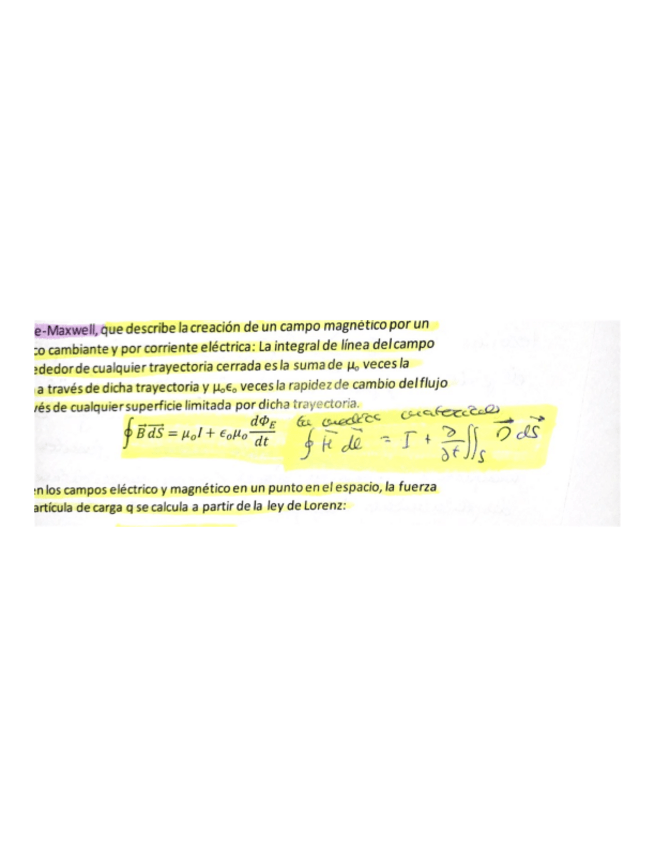 e-Maxwell, que describe la creación de un campo magnético por un
co cambiante y por corriente eléctrica: La integral de línea del campo
ededor de cualquier trayectoria cerrada es la suma de μₒ veces la
a través de dicha trayectoria y μₒεₒ veces la rapidez de cambio del flujo
vés de cualquier superficie limitada por dicha trayectoria.
En medios materiales
∮ B⃗ dS⃗ = μₒI + ϵₒμₒ dΦ_E/dt ∮ H⃗ dl⃗ = I + ∂/∂t ∬_S D⃗ dS⃗
en los campos eléctrico y magnético en un punto en el espacio, la fuerza
artícula de carga q se calcula a partir de la ley de Lorenz: